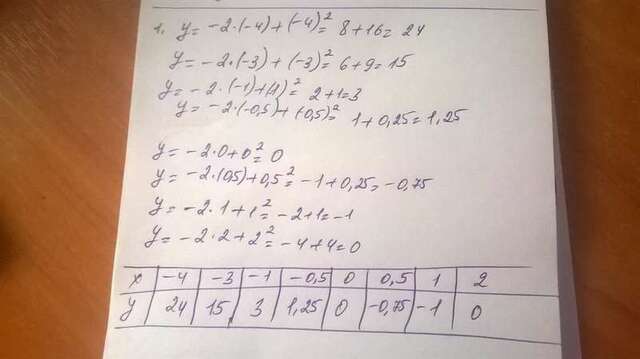 1. y = -2·(-4)+(-4)²= 8+16= 24
y = -2·(-3)+(-3)²= 6+9=15
y = -2·(-1)+(-1)²= 2+1=3
y = -2·(-0,5)+(-0,5)²= 1+0,25=1,25
y = -2·0+0²= 0
y = -2·(0,5)+0,5²= -1+0,25=-0,75
y = -2·1+1²= -2+1=-1
y = -2·2+2²= -4+4=0
x -4 -3 -1 -0,5 0 0,5 1 2
y 24 15 3 1,25 0 -0,75 -1 0